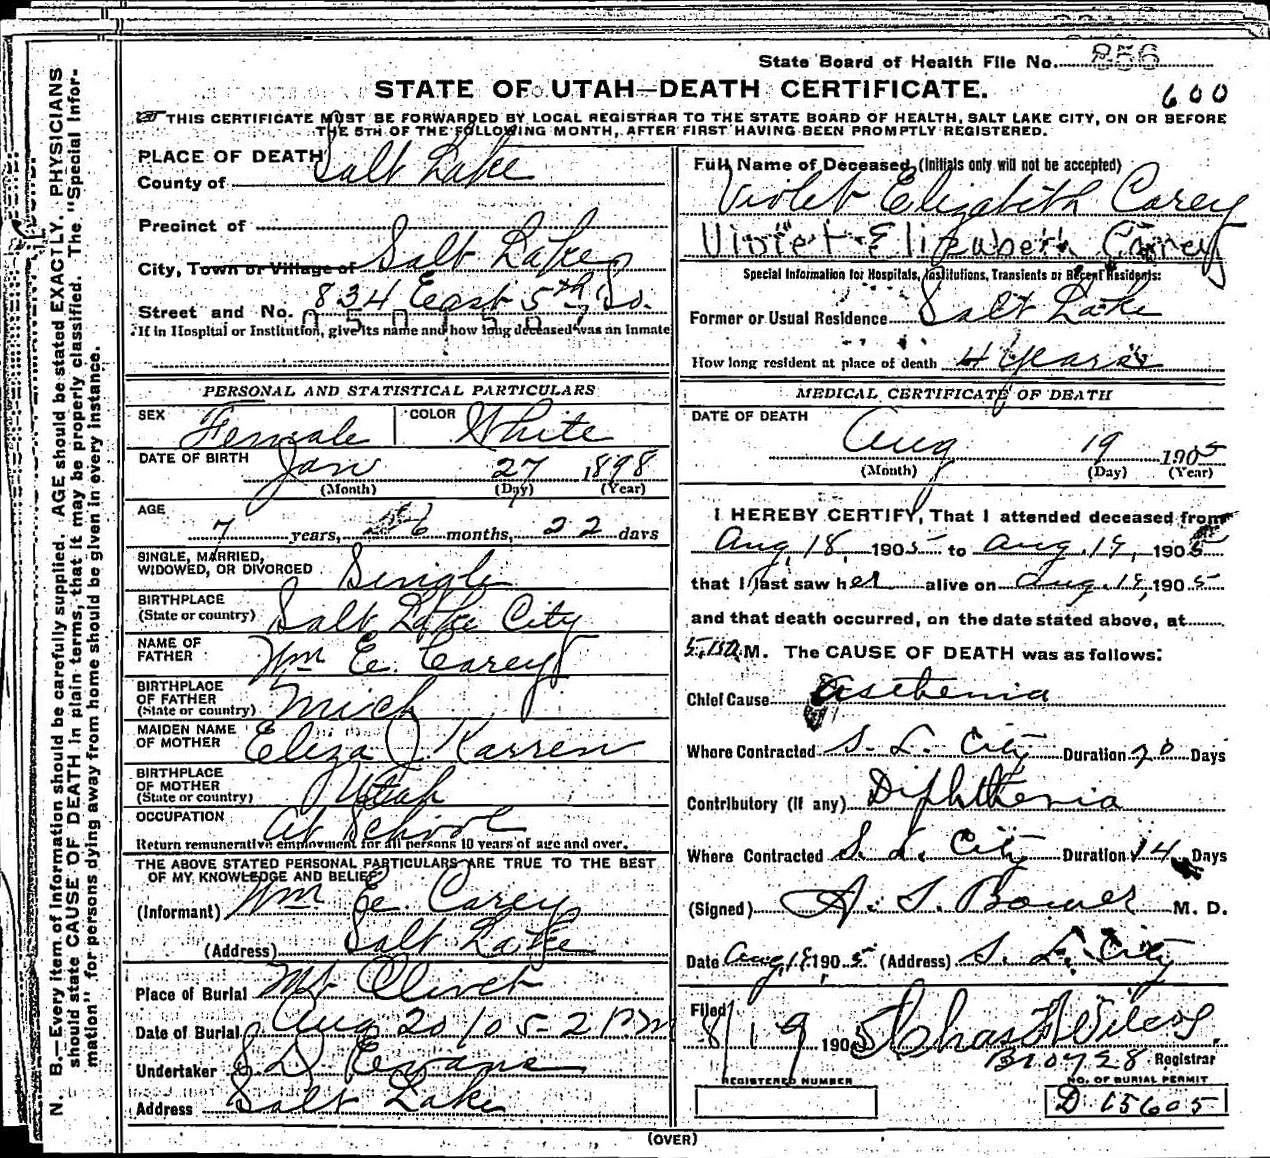 State Board of Health File No. 856
STATE OF UTAH—DEATH CERTIFICATE.
600
THIS CERTIFICATE MUST BE FORWARDED BY LOCAL REGISTRAR TO THE STATE BOARD OF HEALTH, SALT LAKE CITY, ON OR BEFORE
THE 5TH OF THE FOLLOWING MONTH, AFTER FIRST HAVING BEEN PROMPTLY REGISTERED.
N. B.—Every item of information should be carefully supplied. AGE should be stated EXACTLY. PHYSICIANS
should state CAUSE OF DEATH in plain terms, that it may be properly classified. The "Special Infor-
mation" for persons dying away from home should be given in every instance.
PLACE OF DEATH
County of Salt Lake
Precinct of
City, Town or Village of Salt Lake
Street and No. 834 East 5th So.
If in Hospital or Institution, give its name and how long deceased was an inmate
PERSONAL AND STATISTICAL PARTICULARS
SEX Female COLOR White
DATE OF BIRTH Jan 27 1898
(Month) (Day) (Year)
AGE
7 years, 6 months, 22 days
SINGLE, MARRIED,
WIDOWED, OR DIVORCED Single
BIRTHPLACE
(State or country) Salt Lake City
NAME OF
FATHER Wm E. Carey
BIRTHPLACE
OF FATHER
(State or country) Mich
MAIDEN NAME
OF MOTHER Eliza J. Karren
BIRTHPLACE
OF MOTHER
(State or country) Utah
OCCUPATION At School
Return remunerative employment for all persons 10 years of age and over.
THE ABOVE STATED PERSONAL PARTICULARS ARE TRUE TO THE BEST
OF MY KNOWLEDGE AND BELIEF
(Informant) Wm E. Carey
(Address) Salt Lake
Place of Burial Mt Olivet
Date of Burial Aug 20/05-2 PM
Undertaker S. D. Evans
Address Salt Lake
Full Name of Deceased (Initials only will not be accepted)
Violet Elizabith Carey
Violet Elizabeth Carey
Special Information for Hospitals, Institutions, Transients or Recent Residents:
Former or Usual Residence Salt Lake
How long resident at place of death 4 years
MEDICAL CERTIFICATE OF DEATH
DATE OF DEATH
Aug 19 1905
(Month) (Day) (Year)
I HEREBY CERTIFY, That I attended deceased from
Aug 18, 1905 to Aug. 19, 1905
that I last saw her alive on Aug. 19, 1905
and that death occurred, on the date stated above, at
M. The CAUSE OF DEATH was as follows:
Chief Cause Asthenia
Where Contracted S. L. City Duration 20 Days
Contributory (if any) Diphthenia
Where Contracted S. L. City Duration 14 Days
(Signed) A. S. Bower M. D.
Date Aug 19, 1905 (Address) S. L. City
Filed
8/19 1905 Chas Wilcox.
Registrar
REGISTERED NUMBER
NO. OF BURIAL PERMIT
D 15605
(OVER)